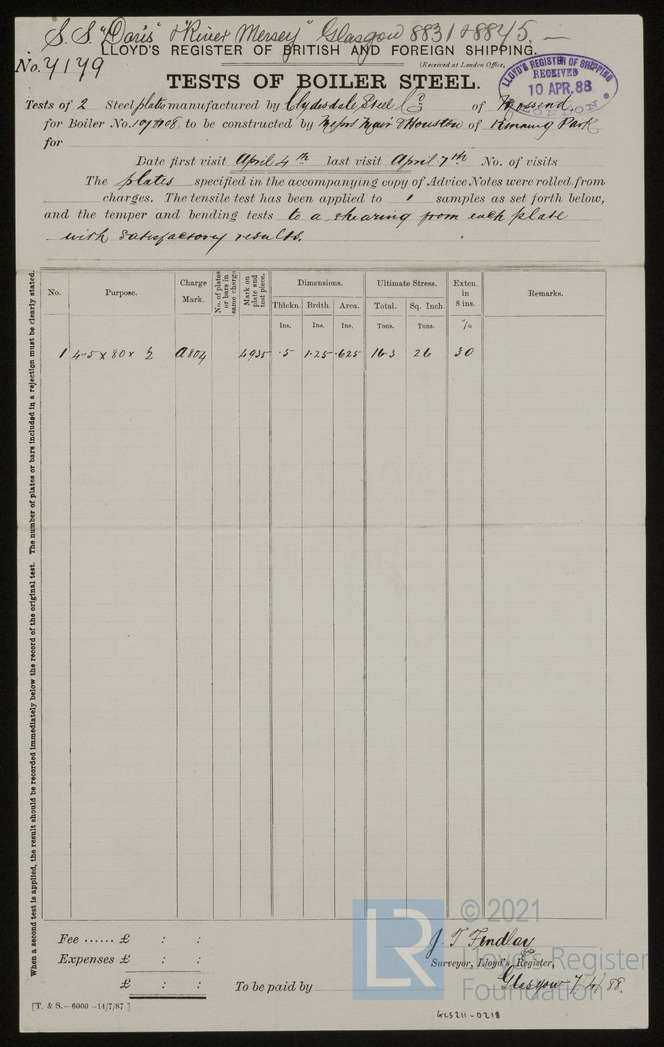 S.S. "Doris" & "River Mersey" Glasgow 8831 & 8845. —
LLOYD'S REGISTER OF BRITISH AND FOREIGN SHIPPING.
No. 7179
(Received at London Office,
LLOYD'S REGISTER OF SHIPPING
RECEIVED
10 APR. 88
LONDON
TESTS OF BOILER STEEL.
Tests of 2 Steel plates manufactured by Clydesdale Steel Co of Mossend
for Boiler No. 107 & 108 to be constructed by Messrs Muir & Houston of Kinning Park
for
Date first visit April 4th last visit April 7th No. of visits
The plates specified in the accompanying copy of Advice Notes were rolled from
charges. The tensile test has been applied to 1 samples as set forth below,
and the temper and bending tests to a shearing from each plate
with satisfactory results.
When a second test is applied, the result should be recorded immediately below the record of the original test. The number of plates or bars included in a rejection must be clearly stated.
No. Purpose. Charge Mark. No. of plates or bars in same charge Mark on plate and test piece. Dimensions. Ultimate Stress. Exten. in 8 ins. Remarks.
Thickn. Brdth. Area. Total. Sq. Inch.
Ins. Ins. Ins. Tons. Tons. %
1 4·5 x 80 x ½ A804 4935 ·5 1·25 ·625 16·3 26 30
Fee ...... £ : :
Expenses £ : :
£ : :
J. T. Findlay
Surveyor, Lloyd's Register,
Glasgow 7/4/88.
To be paid by
[T. & S.—6000—14/7/87]
GLS211-0218
LR
© 2021
Lloyd's Register
Foundation